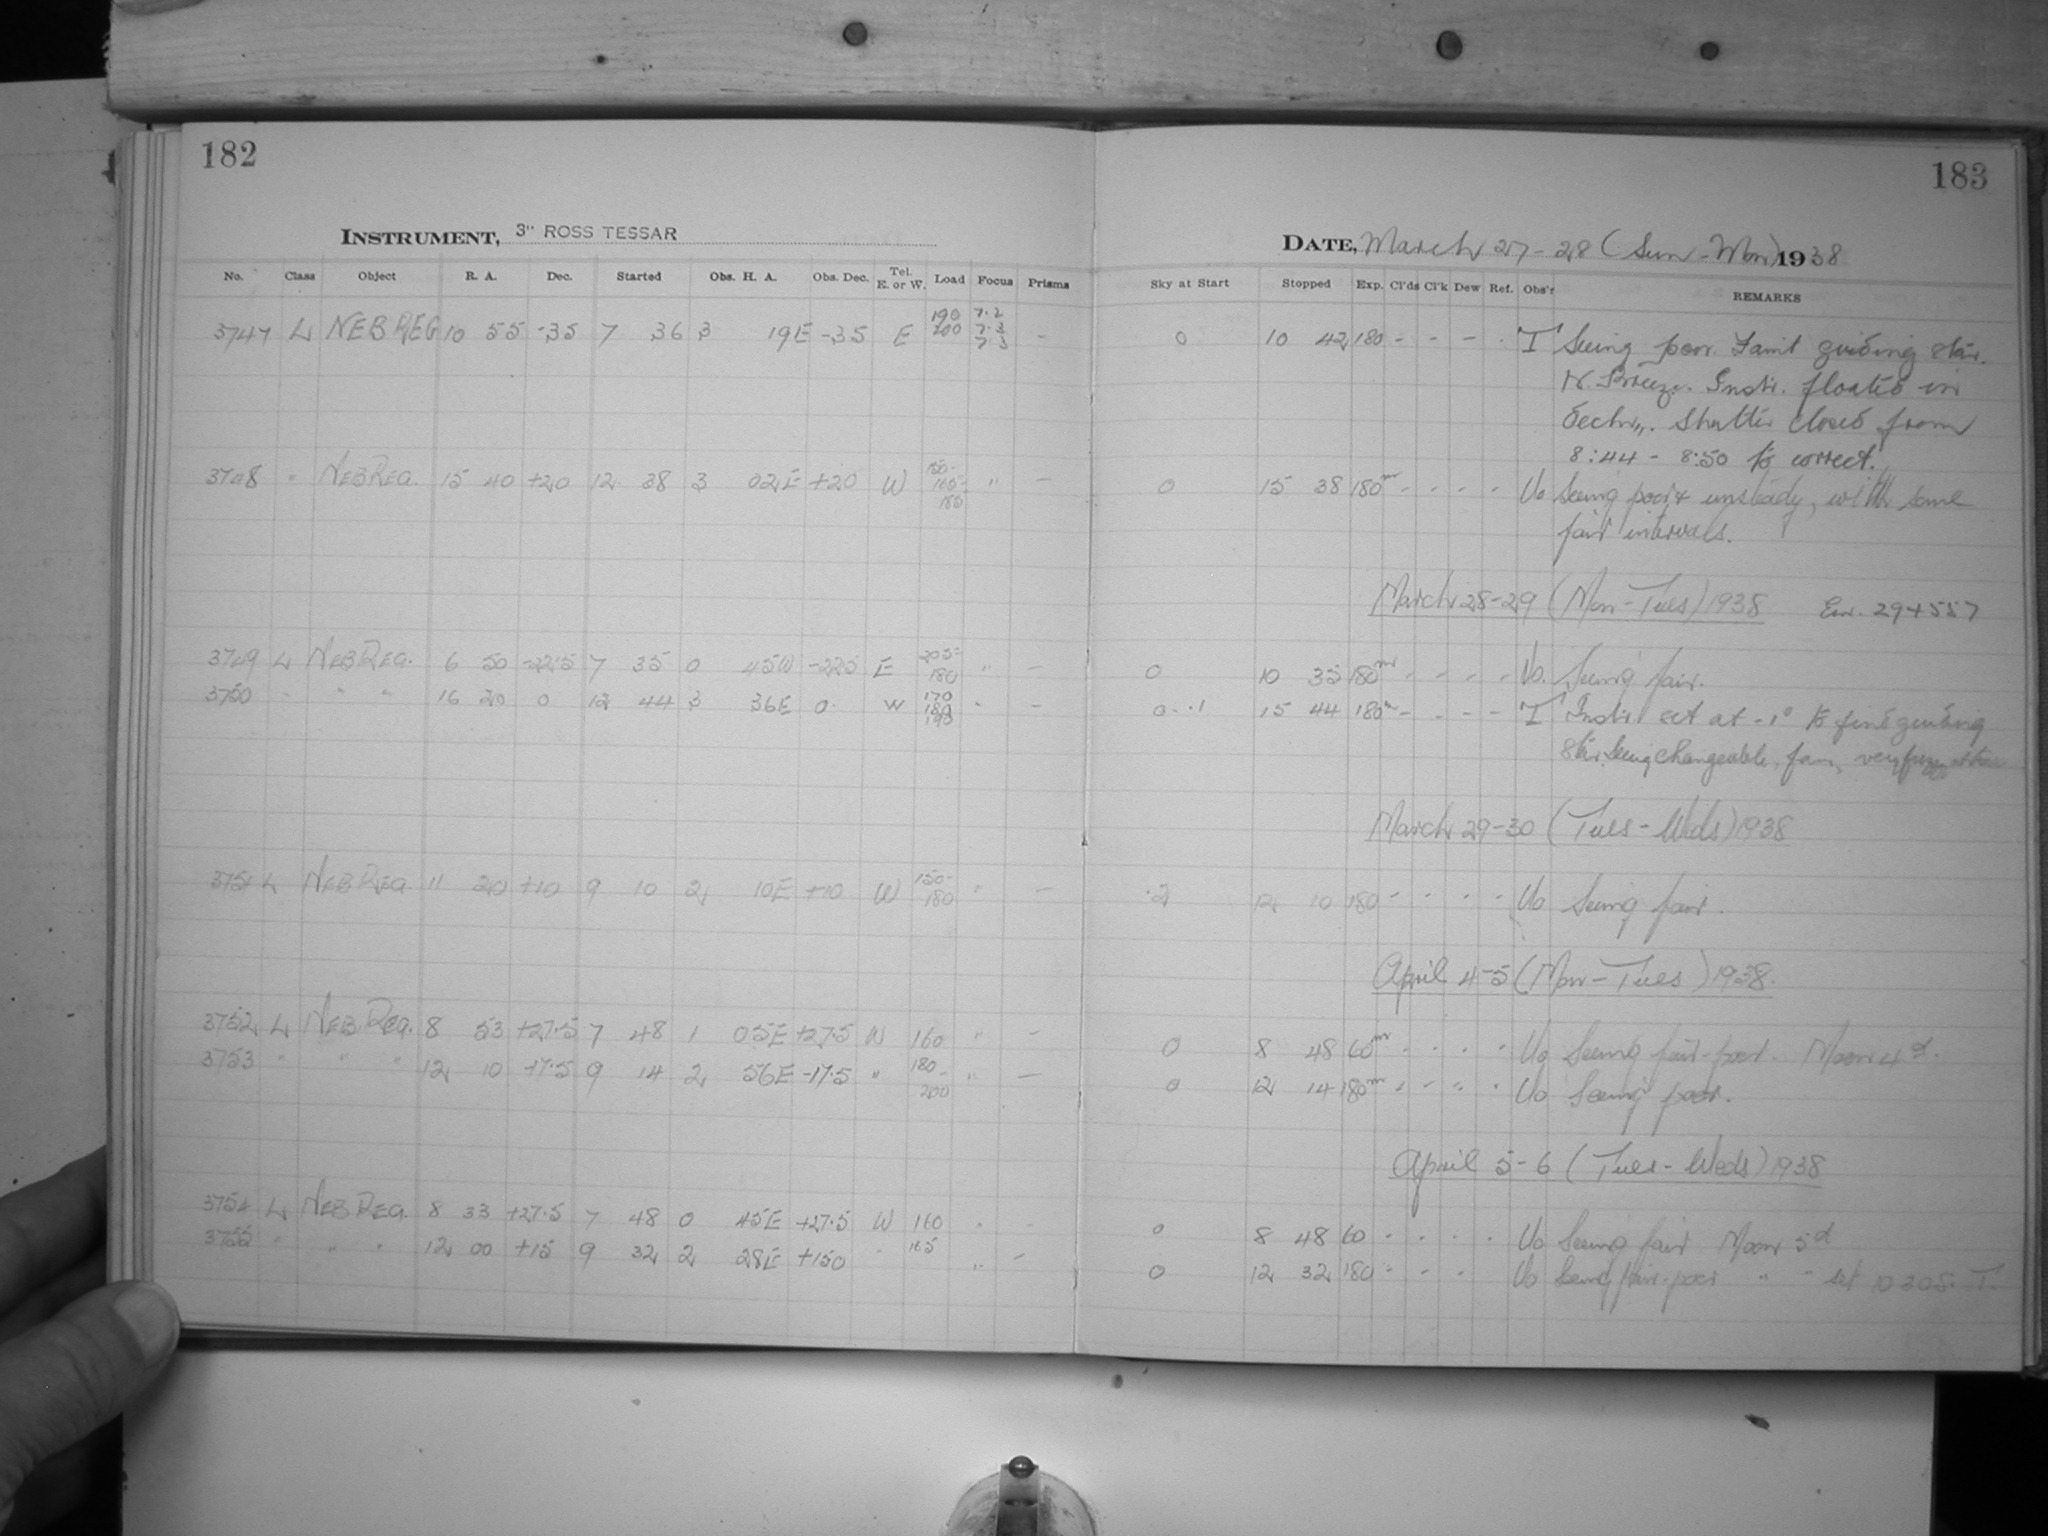 182
INSTRUMENT, 3" ROSS TESSAR
No. Class Object R. A. Dec. Started Obs. H. A. Obs. Dec. Tel. E. or W. Load Focus Prisms
3747 L NEB REG 10 55 -35 7 36 3 19E -35 E 190 200 7.2 7.3 7.3 -
3748 " NEB REG. 15 40 +20 12 38 3 02E +20 W 165- 185 " -
3749 L NEB REG. 6 50 -22.5 7 35 0 45W -22.5 E 205- 180 " -
3750 " " " 16 20 0 12 44 3 36E 0 W 170 180 190 " -
3751 L NEB REG 11 20 +10 9 10 2 10E +10 W 150- 180 " -
3752 L NEB REG. 8 53 +27.5 7 48 1 05E +27.5 W 160 " -
3753 " " " 12 10 -17.5 9 14 2 56E -17.5 " 180- 200 " -
3754 L NEB REG. 8 33 +27.5 7 48 0 45E +27.5 W 160 " -
3755 " " " 12 00 +15 9 32 2 28E +150 " 165 " -
183
DATE, March 27-28 (Sun-Mon) 1938
Sky at Start Stopped Exp. Cl'ds Cl'k Dew Ref. Obs'r REMARKS
0 10 42 180 - - - - T Seeing poor. Faint guiding star.
N. Breeze. Instr. floated in
Shutter closed from
8:44 - 8:50 to correct.
0 15 38 180m - - - - Uo Seeing poor & unsteady, with some
fair intervals.
March 28-29 (Mon-Tues) 1938
0 10 35 180m - - - - Uo. Seeing fair.
0-.1 15 44 180m - - - - T Instr. set at -1° to find guiding
star. Seeing changeable, fair, very
March 29-30 (Tues-Weds) 1938
.2 12 10 180 - - - - Uo Seeing fair.
April 4-5 (Mon-Tues) 1938.
0 8 48 60m - - - - Uo Seeing fair-poor. Moon 4d.
0 12 14 180m - - - - Uo Seeing poor.
April 5-6 (Tues-Weds) 1938
0 8 48 60 - - - - Uo Seeing fair Moon 5d
0 12 32 180 - - - Uo Seeing fair-poor " " set 10 30 S. T.